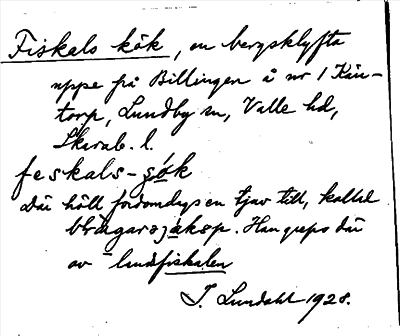 Fiskals kök, en bergsklyfta
uppe på Billingen å nr 1 Kär-
torp, Lundby sn, Valle hd,
Skarab. l.
feskals-
Där höll fordomdags en tjav till, kallad
. Han greps där
av landsfiskalen
J. Lundahl 1928.